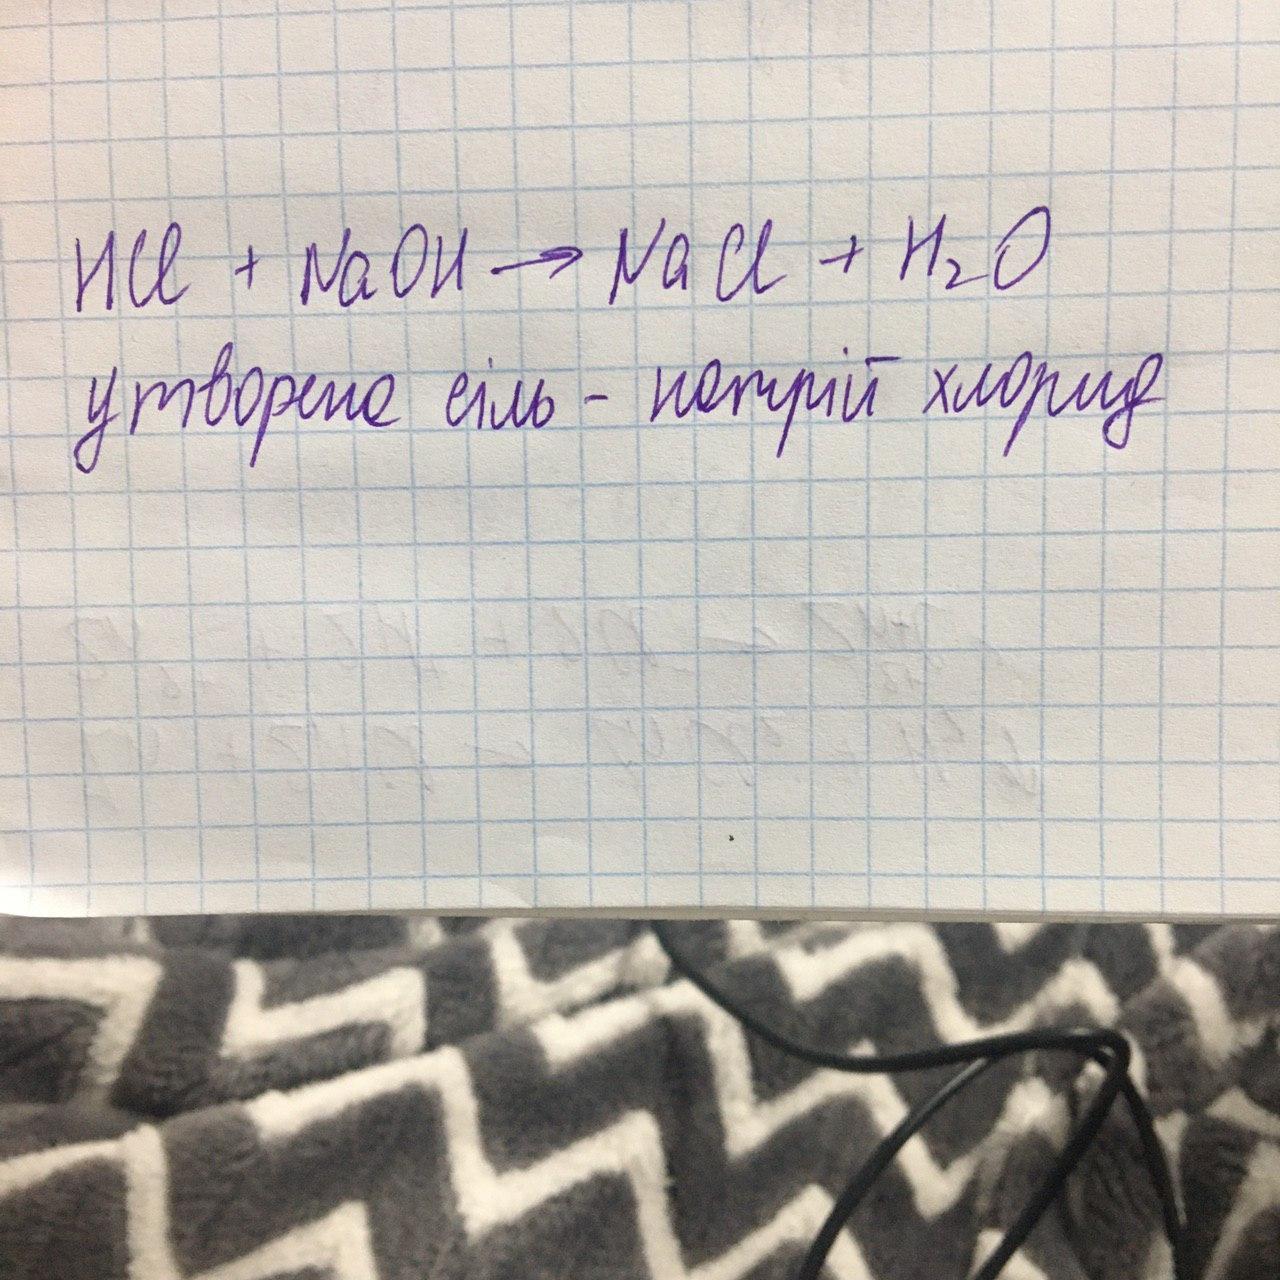 HCl + NaOH → NaCl + H₂O
утворена сіль - натрій хлорид